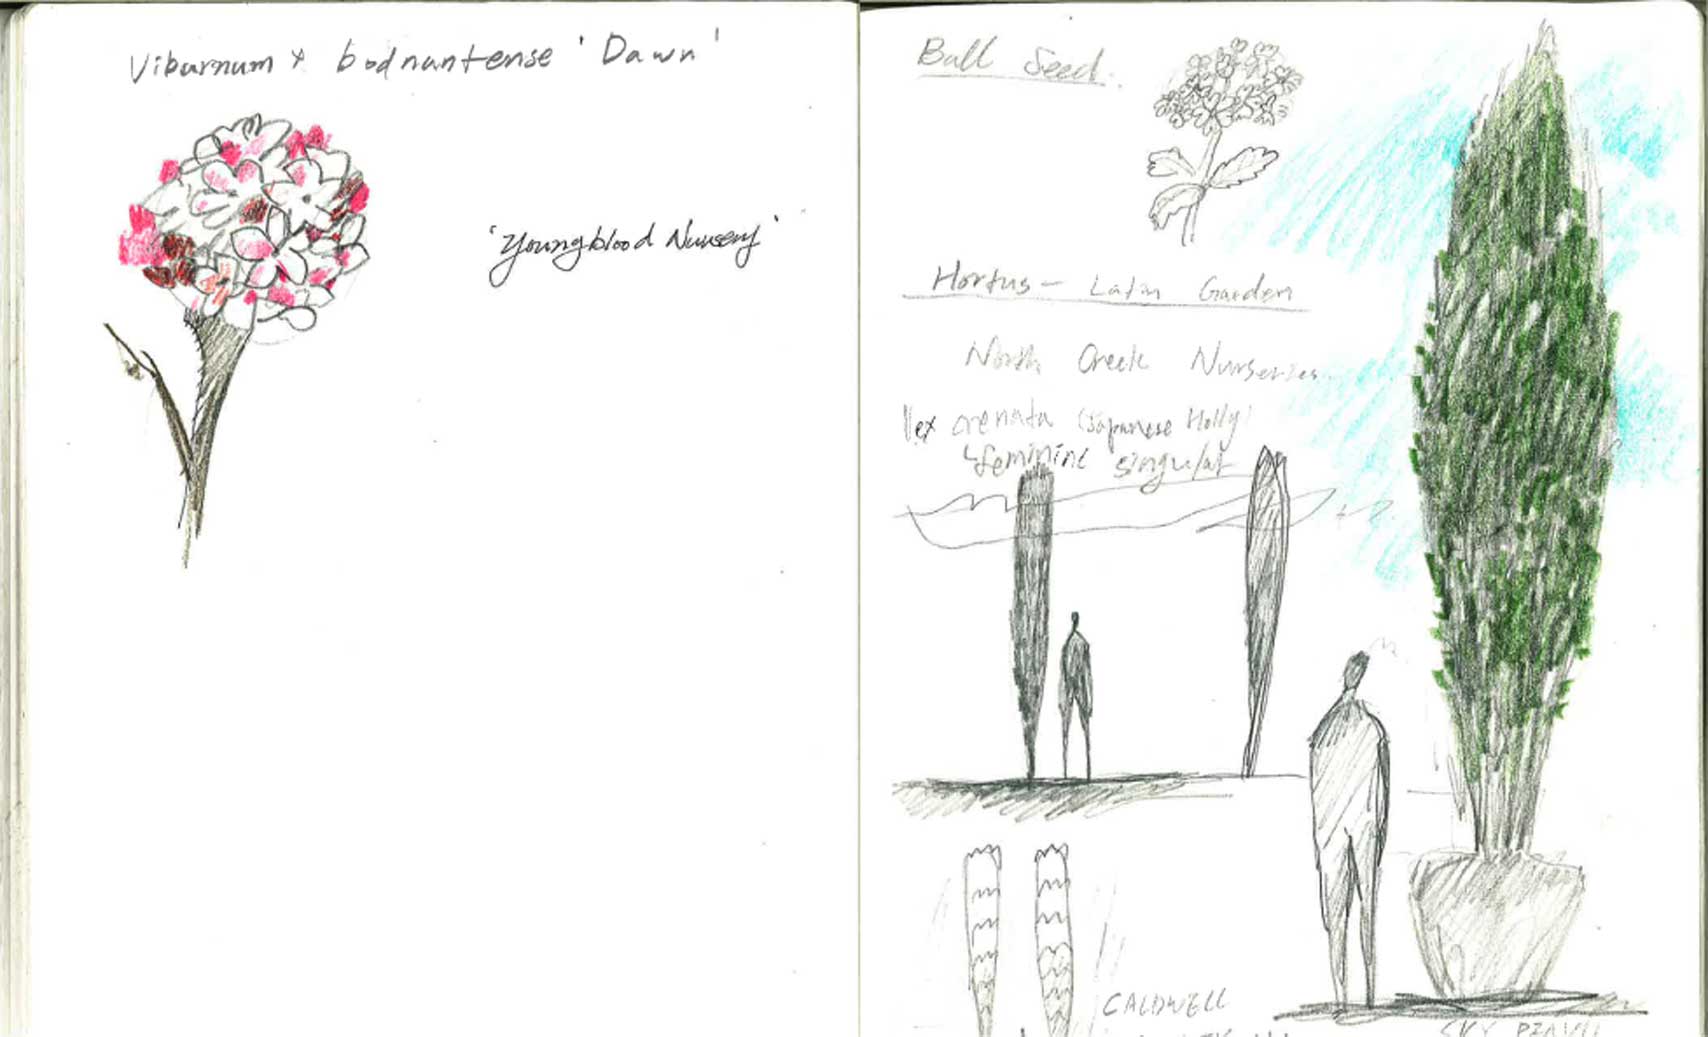 Viburnum x bodnantense 'Dawn'
'Youngblood Nursery'
Ball Seed.
Hortus - Latin Garden
North Creek Nurseries
Ilex crenata (Japanese Holly)
feminine singular
CALDWELL
SKY